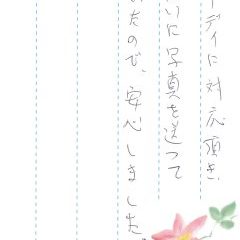 ーディに対応頂き、
いに写真を送って
いたので、安心しました。